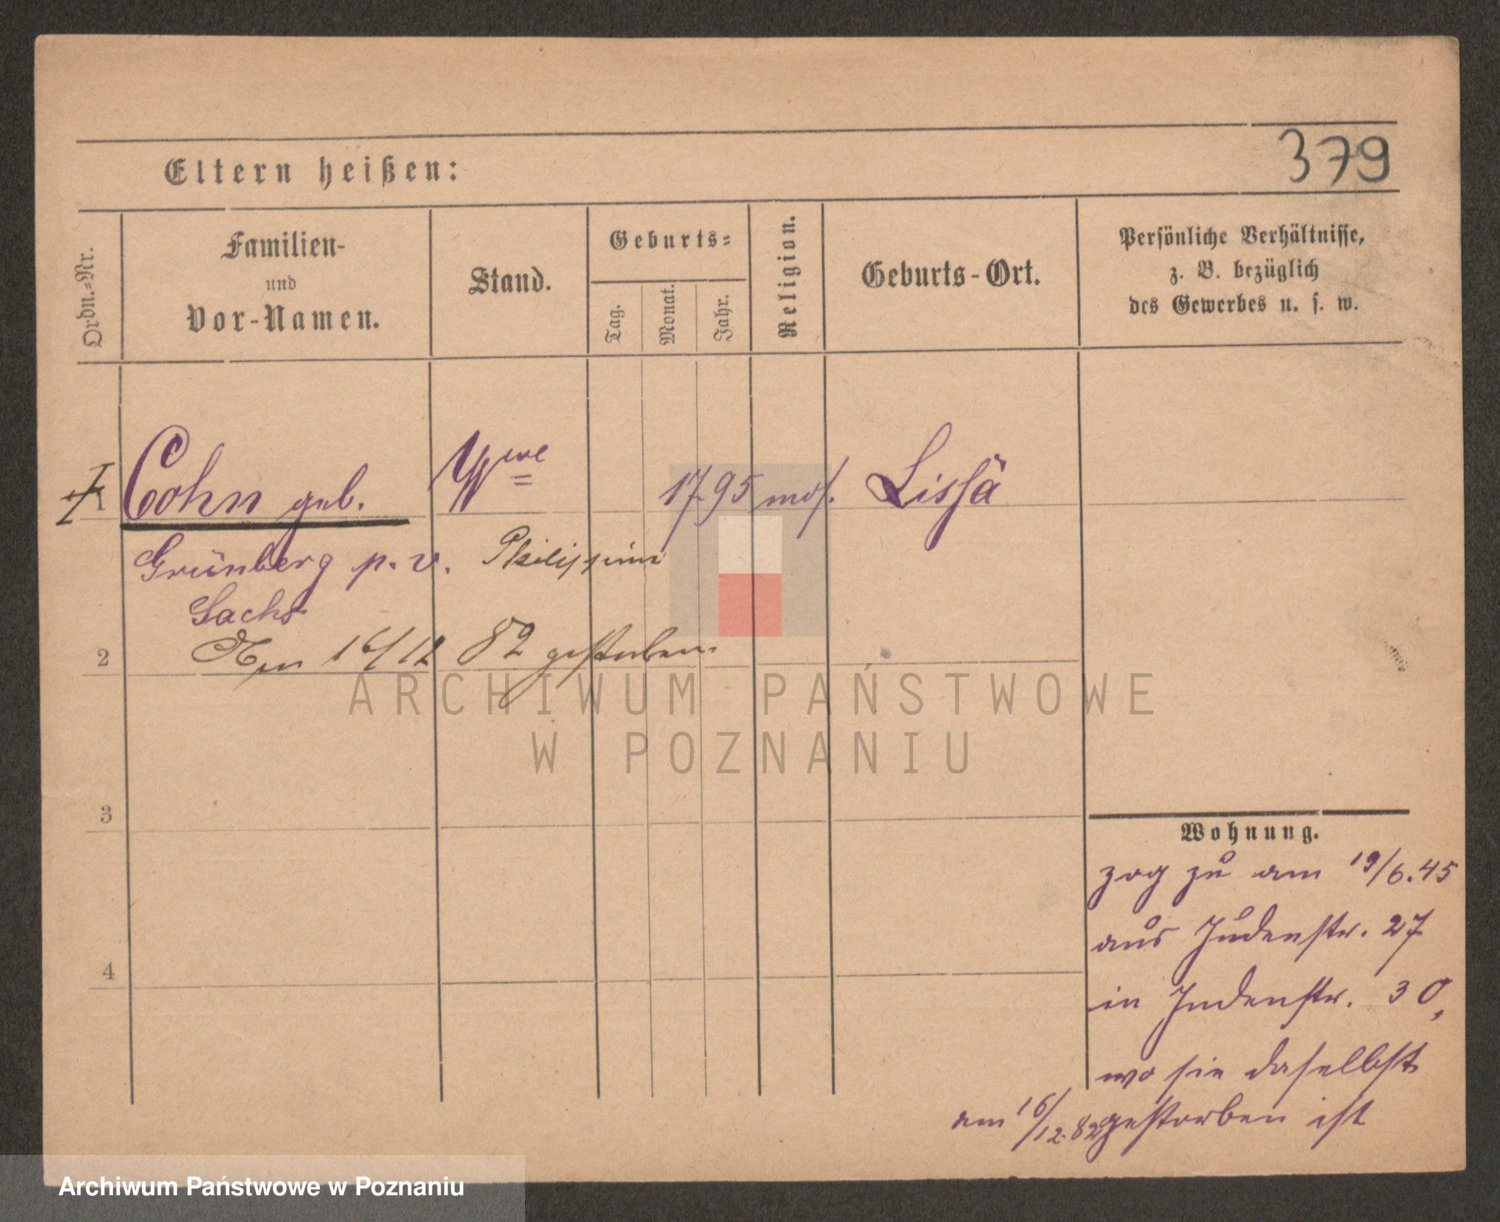 379
Eltern heißen:
Ordn.-Nr.
Familien-
und
Vor-Namen.
Stand.
Geburts-
Tag.
Monat.
Jahr.
Religion.
Geburts-Ort.
Persönliche Verhältnisse,
z. B. bezüglich
des Gewerbes u. s. w.
1 Cohn geb. Wwe 1795 mos. Lissa
Grünberg p. v. Philippine
Sachs
2 Am 16/12 82 gestorben
ARCHIWUM PAŃSTWOWE
W POZNANIU
3
4
Wohnung.
zog zu am 19/6.45
aus Judenstr. 27
in Judenstr. 30,
wo sie daselbst
am 16/12.82 gestorben ist
Archiwum Państwowe w Poznaniu